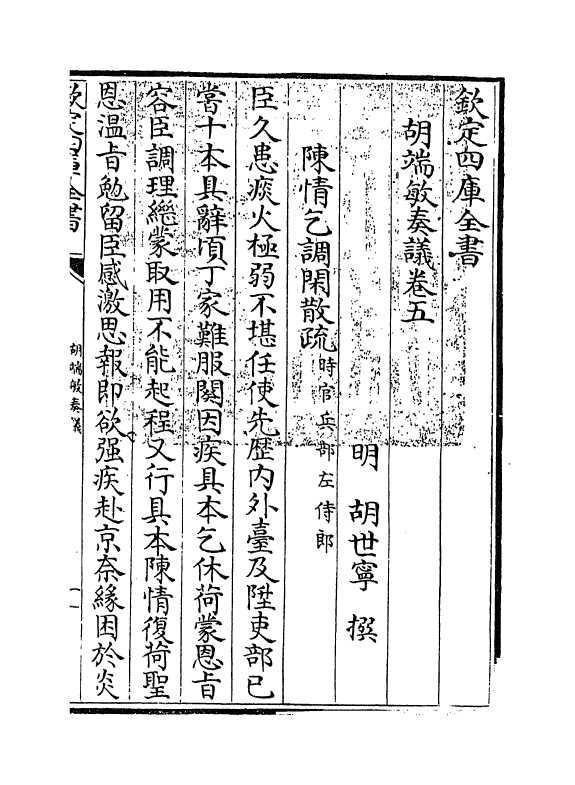 欽定四庫全書
胡端敏奏議卷五
明 胡世寧 撰
陳情乞調閑散疏時官兵部左侍郎
臣久患痰火極弱不堪任使先歴内外臺及陞吏部已
嘗十本具辭頃丁家難服闋因疾具本乞休荷蒙恩旨
容臣調理繼蒙取用不能起程又行具本陳情復荷聖
恩温旨勉留臣感激思報即欲强疾赴京奈緣困於炎
欽定四庫全書
胡端敏奏議
一